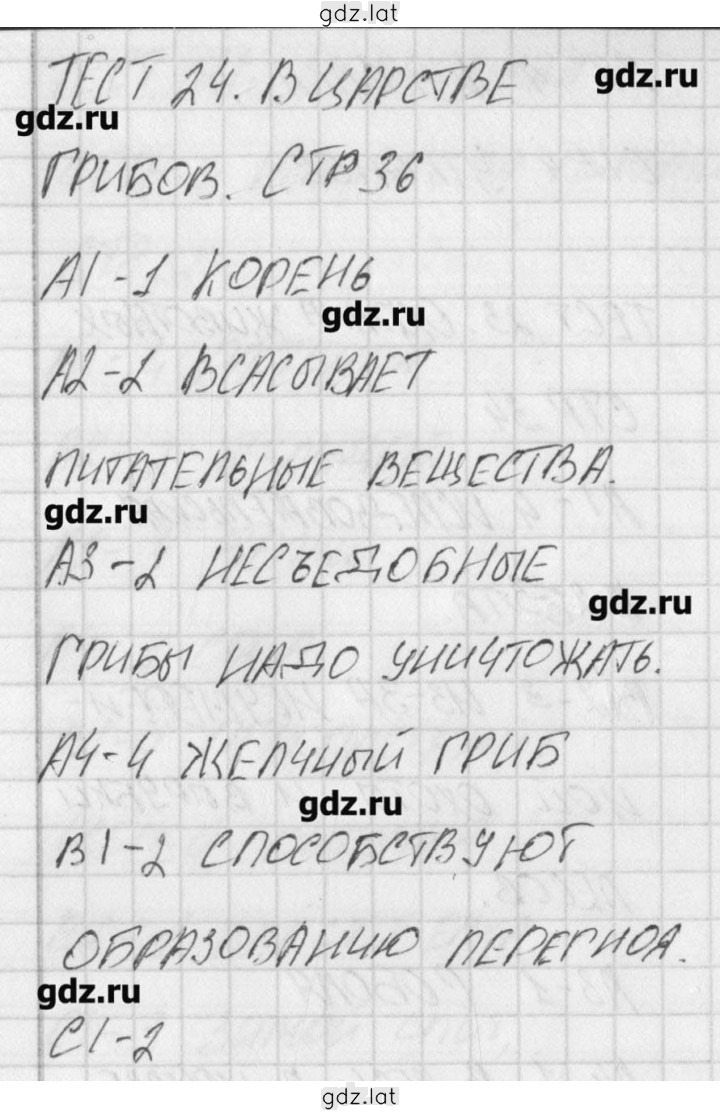 gdz.lat
ТЕСТ 24. В ЦАРСТВЕ
gdz.ru
gdz.ru
ГРИБОВ. СТР 36
А1-1 КОРЕНЬ
gdz.ru
А2-2 ВСАСЫВАЕТ
ПИТАТЕЛЬНЫЕ ВЕЩЕСТВА.
gdz.ru
А3-2 НЕСЪЕДОБНЫЕ
gdz.ru
ГРИБЫ НАДО УНИЧТОЖАТЬ.
А4-4 ЖЕЛЧНЫЙ ГРИБ
gdz.ru
В1-2 СПОСОБСТВУЮТ
ОБРАЗОВАНИЮ ПЕРЕГНОЯ.
gdz.ru
С1-2
gdz.lat